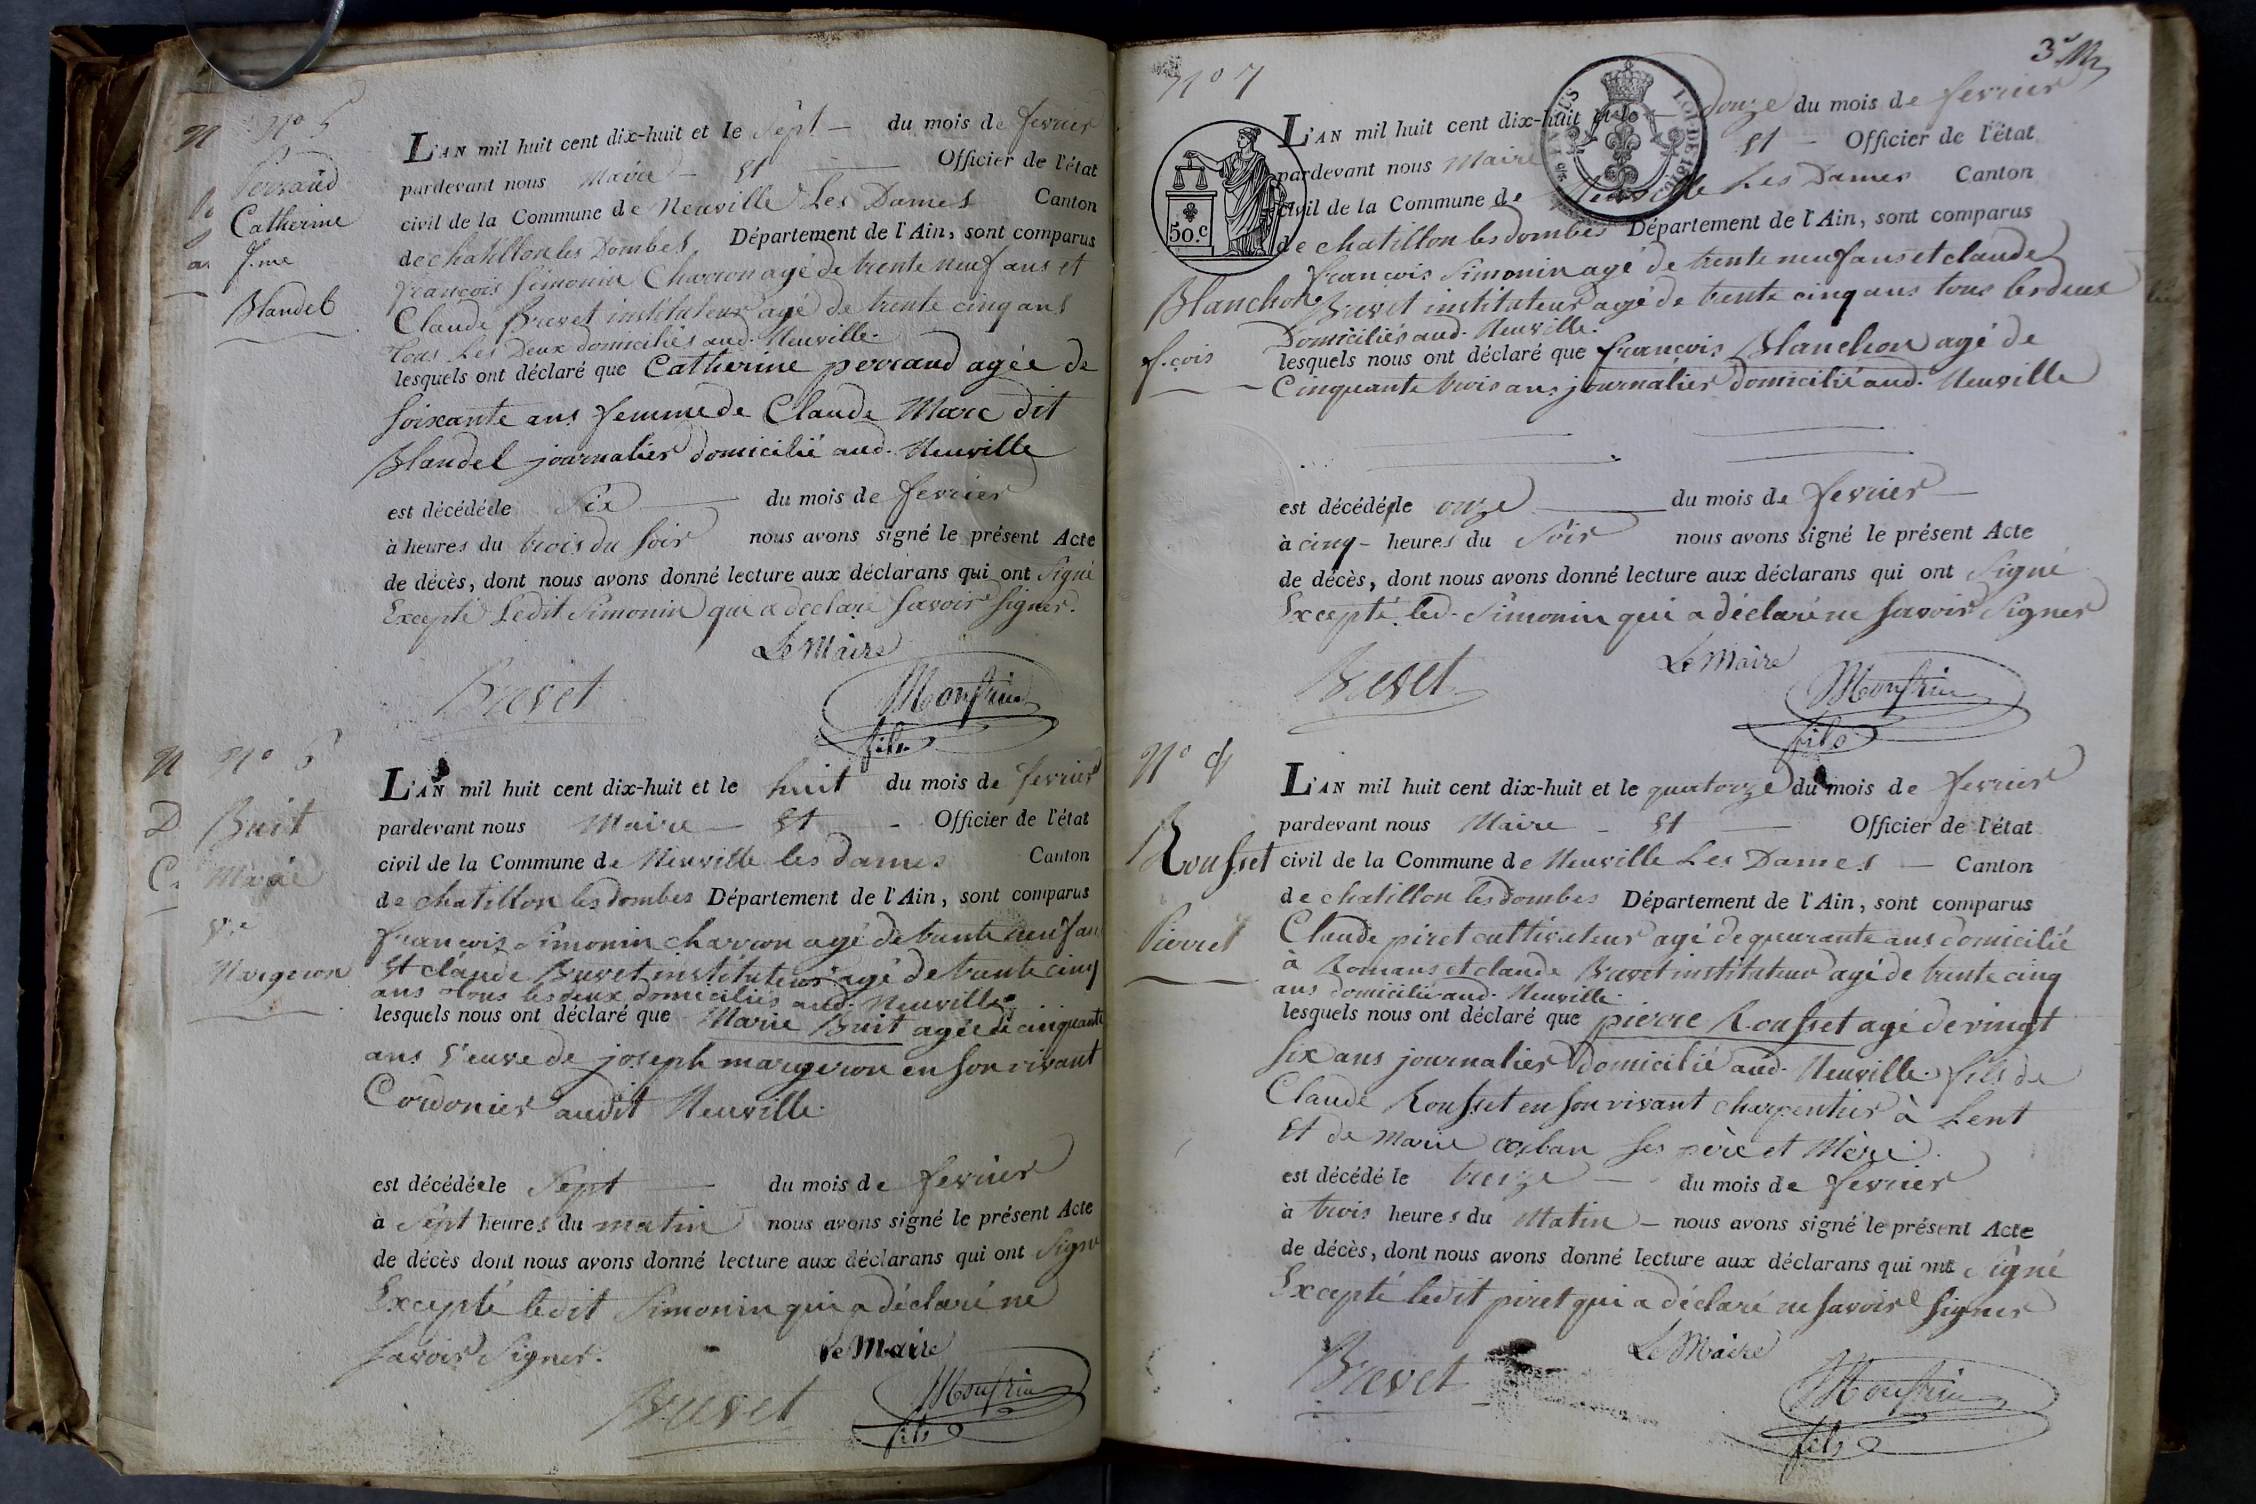 N° 5
Perraud
Catherine
f.me
Blandel
L'AN mil huit cent dix-huit et le sept — du mois de fevrier
pardevant nous Maire — Et — Officier de l'état
civil de la Commune de Neuville Les Dames Canton
de chatillon les Dombes, Département de l'Ain, sont comparus
françois Simonin Charron agé de trente neuf ans et
Claude Brevet instituteur agé de trente cinq ans
tous Les Deux domiciliés aud. Neuville.
lesquels ont déclaré que Catherine perraud agée de
soixante ans femme de Claude Marc dit
Blandel journalier domicilié aud. Neuville
est décédée le Six — du mois de fevrier
à heures du trois du soir nous avons signé le présent Acte
de décès, dont nous avons donné lecture aux déclarans qui ont Signé
Excepté Ledit Simonin qui a declaré savoir signer.
Le Maire
Brevet Monfrin
fils
N° 6
Buit
Marie
V.e
Margeron
L'AN mil huit cent dix-huit et le huit du mois de fevrier
pardevant nous Maire — Et — Officier de l'état
civil de la Commune de Neuville les Dames Canton
de chatillon les dombes Département de l'Ain, sont comparus
françois Simonin charron agé de trente neuf ans
Et claude Brevet instituteur agé de trente cinq
ans tous les deux domiciliés aud. Neuville.
lesquels nous ont déclaré que Marie Buit agée de cinquante
ans Veuve de joseph margeron en son vivant
Cordonier audit Neuville.
est décédée le Sept — du mois de fevrier
à Sept heures du matin nous avons signé le présent Acte
de décès dont nous avons donné lecture aux déclarans qui ont Signé
Excepté ledit Simonin qui a déclaré ne
savoir Signer.
Le Maire
Brevet Monfrin
fils
3e
N° 7
50.c
TIMBRE
LOI DE 1816
Blanchon
f.çois
L'AN mil huit cent dix-huit et le — Douze du mois de fevrier
pardevant nous Maire Et — Officier de l'état
civil de la Commune de Neuville Les Dames Canton
de chatillon les dombes Département de l'Ain, sont comparus
françois Simonin agé de trente neuf ans et claude
Brevet instituteur agé de trente cinq ans tous les deux
Domiciliés aud. Neuville.
lesquels nous ont déclaré que françois Blanchon agé de
Cinquante trois ans journalier domicilié aud. Neuville
est décédé le onze — du mois de fevrier —
à cinq - heures du Soir nous avons signé le présent Acte
de décès, dont nous avons donné lecture aux déclarans qui ont Signé
Excepté led. Simonin qui a déclaré ne savoir Signer
Le Maire
Brevet Monfrin
fils
N° 8
Rousset
Pierre
L'AN mil huit cent dix-huit et le quatorze du mois de fevrier
pardevant nous Maire — Et — Officier de l'état
civil de la Commune de Neuville Les Dames — Canton
de chatillon les dombes Département de l'Ain, sont comparus
Claude piret cultivateur agé de quarante ans domicilié
à Romans et claude Brevet instituteur agé de trente cinq
ans domicilié aud. Neuville.
lesquels nous ont déclaré que pierre Rousset agé de vingt
six ans journalier domicilié aud. Neuville. fils de
Claude Rousset en son vivant charpentier à Lent
Et de Marie ses père et Mère.
est décédé le treize — du mois de fevrier
à trois heures du Matin — nous avons signé le présent Acte
de décès, dont nous avons donné lecture aux déclarans qui ont Signé
Excepté ledit piret qui a déclaré ne savoir Signer
Le Maire
Brevet Monfrin
fils